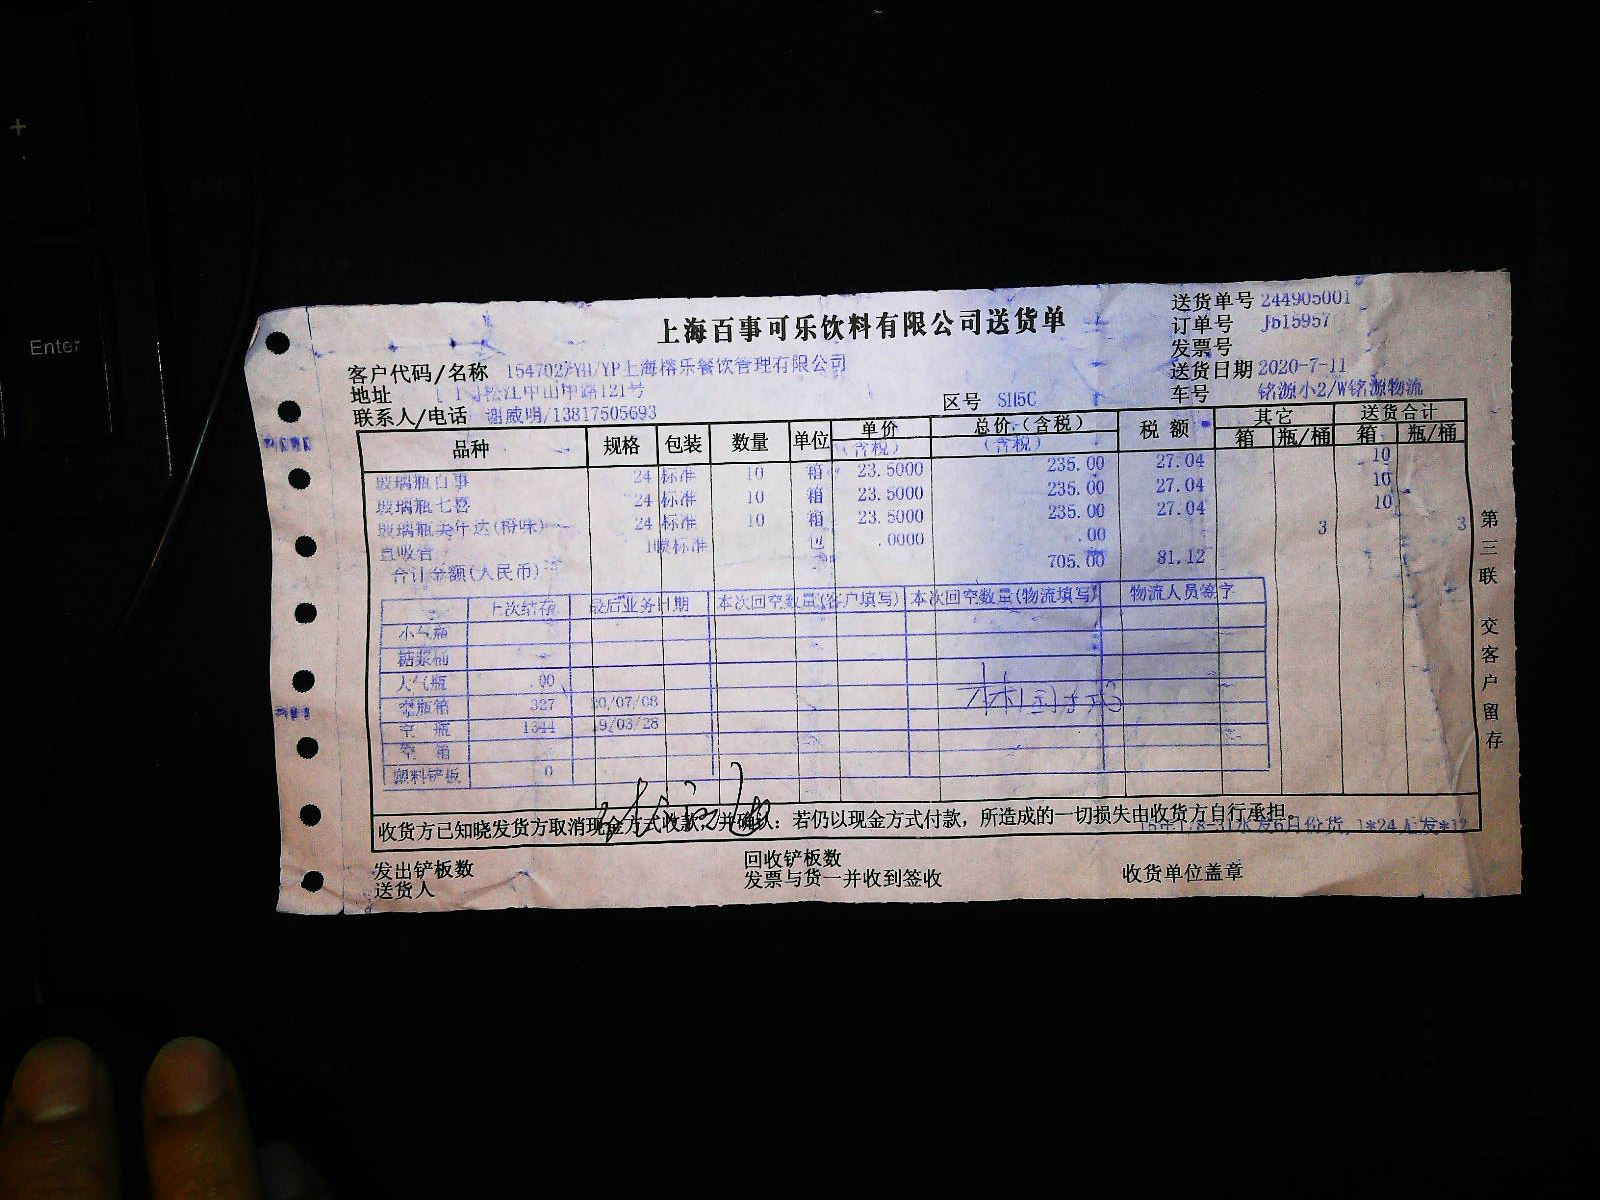 +
Enter
上海百事可乐饮料有限公司送货单
送货单号 244905001
订单号 J515957
发票号
送货日期 2020-7-11
车号 铭源小2/W铭源物流
客户代码/名称 154702/YH/YP上海榕乐餐饮管理有限公司
地址 松江中山中路121号
联系人/电话 谢威明/13817505693
区号 SH5C
品种 规格 包装 数量 单位 单价 总价(含税) 税额 其它 送货合计
(含税) (含税) 箱 瓶/桶 箱 瓶/桶
玻璃瓶百事 24 标准 10 箱 23.5000 235.00 27.04 10
玻璃瓶七喜 24 标准 10 箱 23.5000 235.00 27.04 10
玻璃瓶美年达(橙味) 24 标准 10 箱 23.5000 235.00 27.04 10
直吸管 标准 包 .0000 .00 3 3
合计金额(人民币) 705.00 81.12
上次结存 最后业务日期 本次回空数量(客户填写) 本次回空数量(物流填写) 物流人员签字
小气瓶
糖浆桶
大气瓶 .00
空瓶箱 327 20/07/08
空瓶 1344 19/03/28
空箱
塑料铲板 0
收货方已知晓发货方取消现金方式收款,并确认:若仍以现金方式付款,所造成的一切损失由收货方自行承担。
发出铲板数 回收铲板数 收货单位盖章
送货人 发票与货一并收到签收
第三联 交客户留存